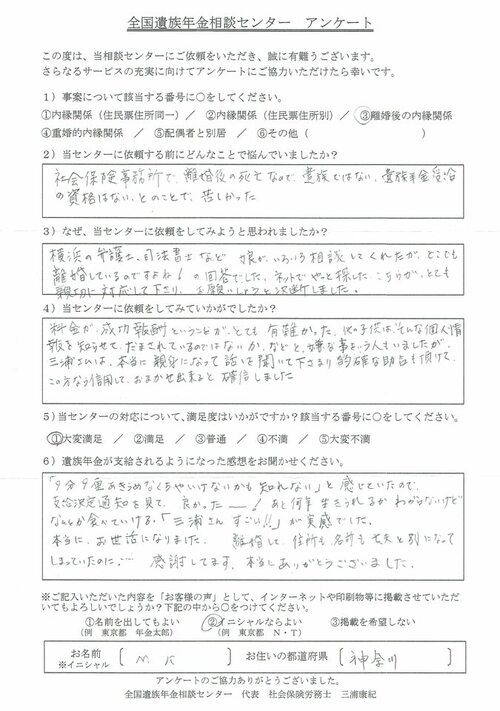 全国遺族年金相談センター　アンケート
この度は、当相談センターにご依頼をいただき、誠に有難うございます。
さらなるサービスの充実に向けてアンケートにご協力いただけたら幸いです。
1）事案について該当する番号に○をしてください。
①内縁関係（住民票住所同一）　/　②内縁関係（住民票住所別）/　③離婚後の内縁関係
④重婚的内縁関係　/　⑤配偶者と別居　/　⑥その他（　　　　　　　　）
2）当センターに依頼する前にどんなことで悩んでいましたか？
社会保険事務所で、離婚後の死亡なので、遺族ではない、遺族年金受給
の資格はない、とのことで、苦しかった
3）なぜ、当センターに依頼をしてみようと思われましたか？
横浜の弁護士、司法書士など　娘が、いろいろ相談してくれたが、どこも
離婚しているのですよね！の回答でした。ネットでやっと探した、こちらが、とても
親切に対応して下さり、お願いしようと決断しました。
4）当センターに依頼をしてみていかがでしたか？
料金が、成功報酬ということが、とても有難かった。他の子供は、そんな個人情
報を知らせて、だまされているのではないか、などと、嫌な事をいう人もいましたが、
三浦さんは、本当に親身になって話を聞いて下さり的確な助言も頂けて、
この方なら信用して、おまかせ出来ると確信しました
5）当センターの対応について、満足度はいかがですか？該当する番号に○をしてください。
①大変満足　/　②満足　/　③普通　/　④不満　/　⑤大変不満
6）遺族年金が支給されるようになった感想をお聞かせください。
「9分9厘あきらめなくちゃいけないかも知れない」と感じていたので、
支給決定通知を見て、良かったー！あと何年生きられるかわからないけど
なんとか食べていける。「三浦さんすごい!!」が実感でした。
本当に、お世話になりました。　離婚して、住所も名前も夫と別になって
しまっていたのに…　感謝してます。本当にありがとうございました。
※ご記入いただいた内容を「お客様の声」として、インターネットや印刷物等に掲載させていただ
いてもよろしいでしょうか？下記の中から○をつけてください。
①名前を出してもよい　②イニシャルならよい　③掲載を希望しない
（例　東京都　年金太郎）　（例　東京都　N・T）
お名前
※イニシャル
M K
お住いの都道府県
神奈川
アンケートのご協力ありがとうございました。
全国遺族年金相談センター　代表　社会保険労務士　三浦康紀